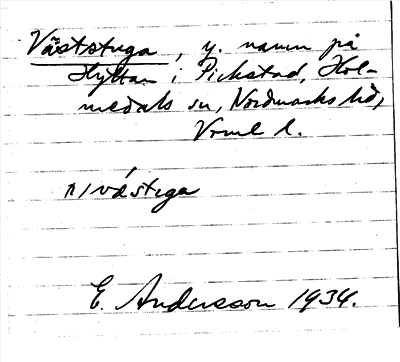 Väststuga, y. namn på
Hyttan i Pickstad, Hol-
medals sn, Nordmarks hd,
Vrml l.
n/västuga
E. Andersson 1934.